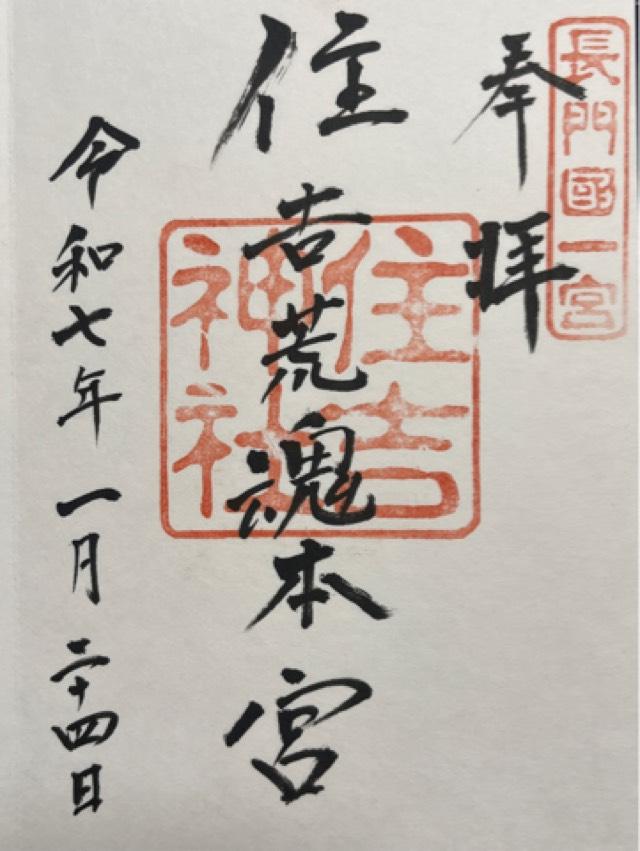 長門國一宮
奉拝
住吉荒魂本宮
住吉
神社
令和七年一月二十四日